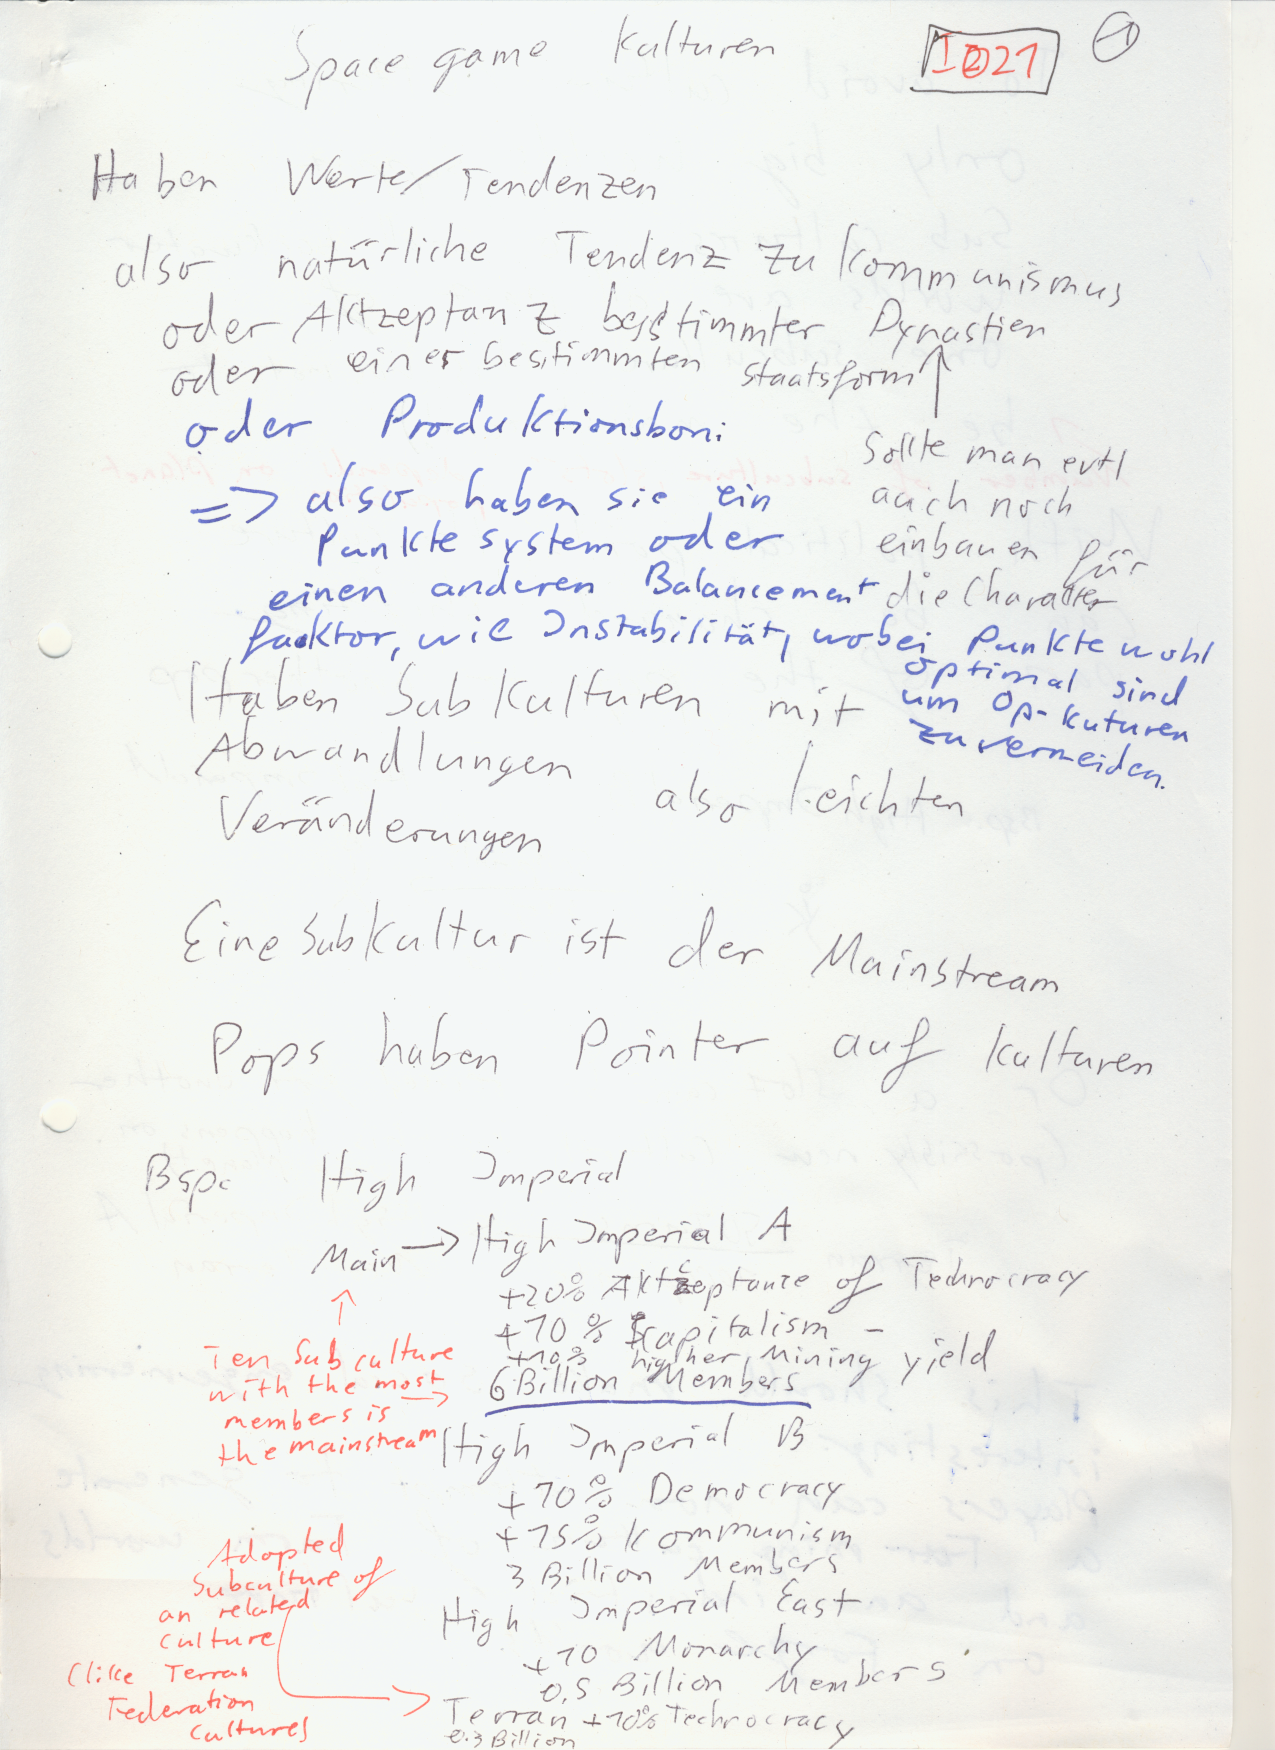 Space game Kulturen
I021
1
Haben Werte/Tendenzen
also natürliche Tendenz zu Kommunismus
oder Aktzeptanz besstimmter Dynastien
oder einer bestimmten Staatsform
oder Produktionsboni
Sollte man evtl
auch noch
einbauen für
die Charakter
=> also haben sie ein
Punktesystem oder
einen anderen Balancement
facktor, wie Instabilität, wobei Punkte wohl
optimal sind
um Op-Kuturen
zu vermeiden.
Haben Subkulturen mit
Abwandlungen also leichten
Veränderungen
Eine Subkultur ist der Mainstream
Pops haben Pointer auf Kulturen
Bsp: High Imperial
Main → High Imperial A
+20% Aktzeptance of Technocracy
+10% Capitalism -
+10% higher Mining yield
6 Billion Members
Ten Subculture
with the most →
members is
the mainstream
High Imperial B
+10% Democracy
+15% Kommunism
3 Billion Members
High Imperial East
+10 Monarchy
0,5 Billion Members
Adopted
Subculture of
an related
culture
(like Terran
Federation
Cultures)
Terran +10% Technocracy
0.3 Billion